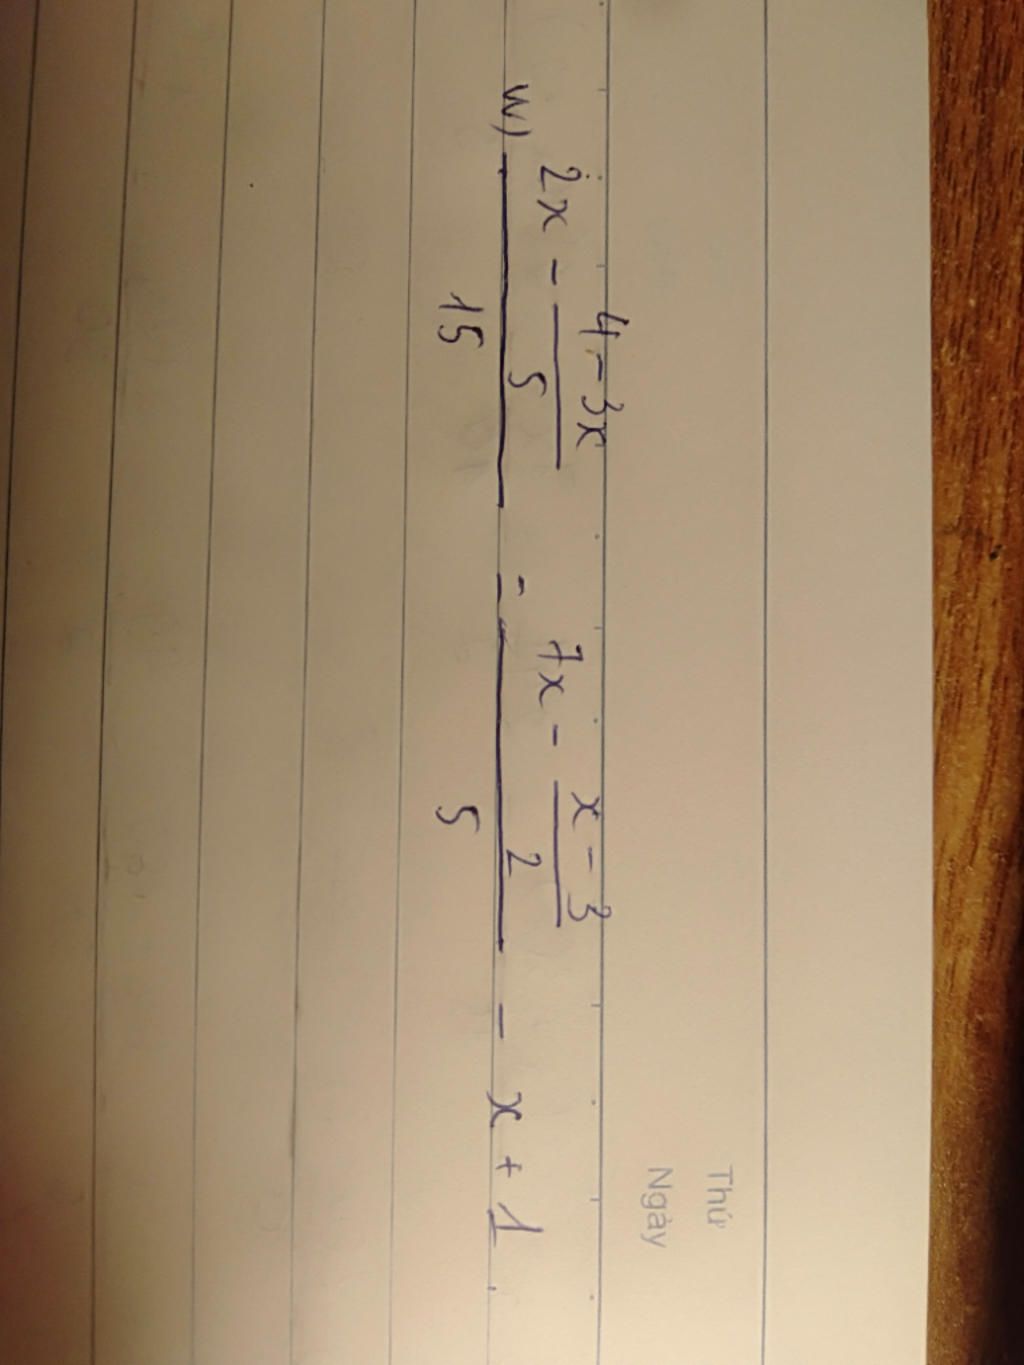 Thứ
Ngày
w) \frac{2x - \frac{4-3x}{5}}{15} = \frac{7x - \frac{x-3}{2}}{5} - x + 1.